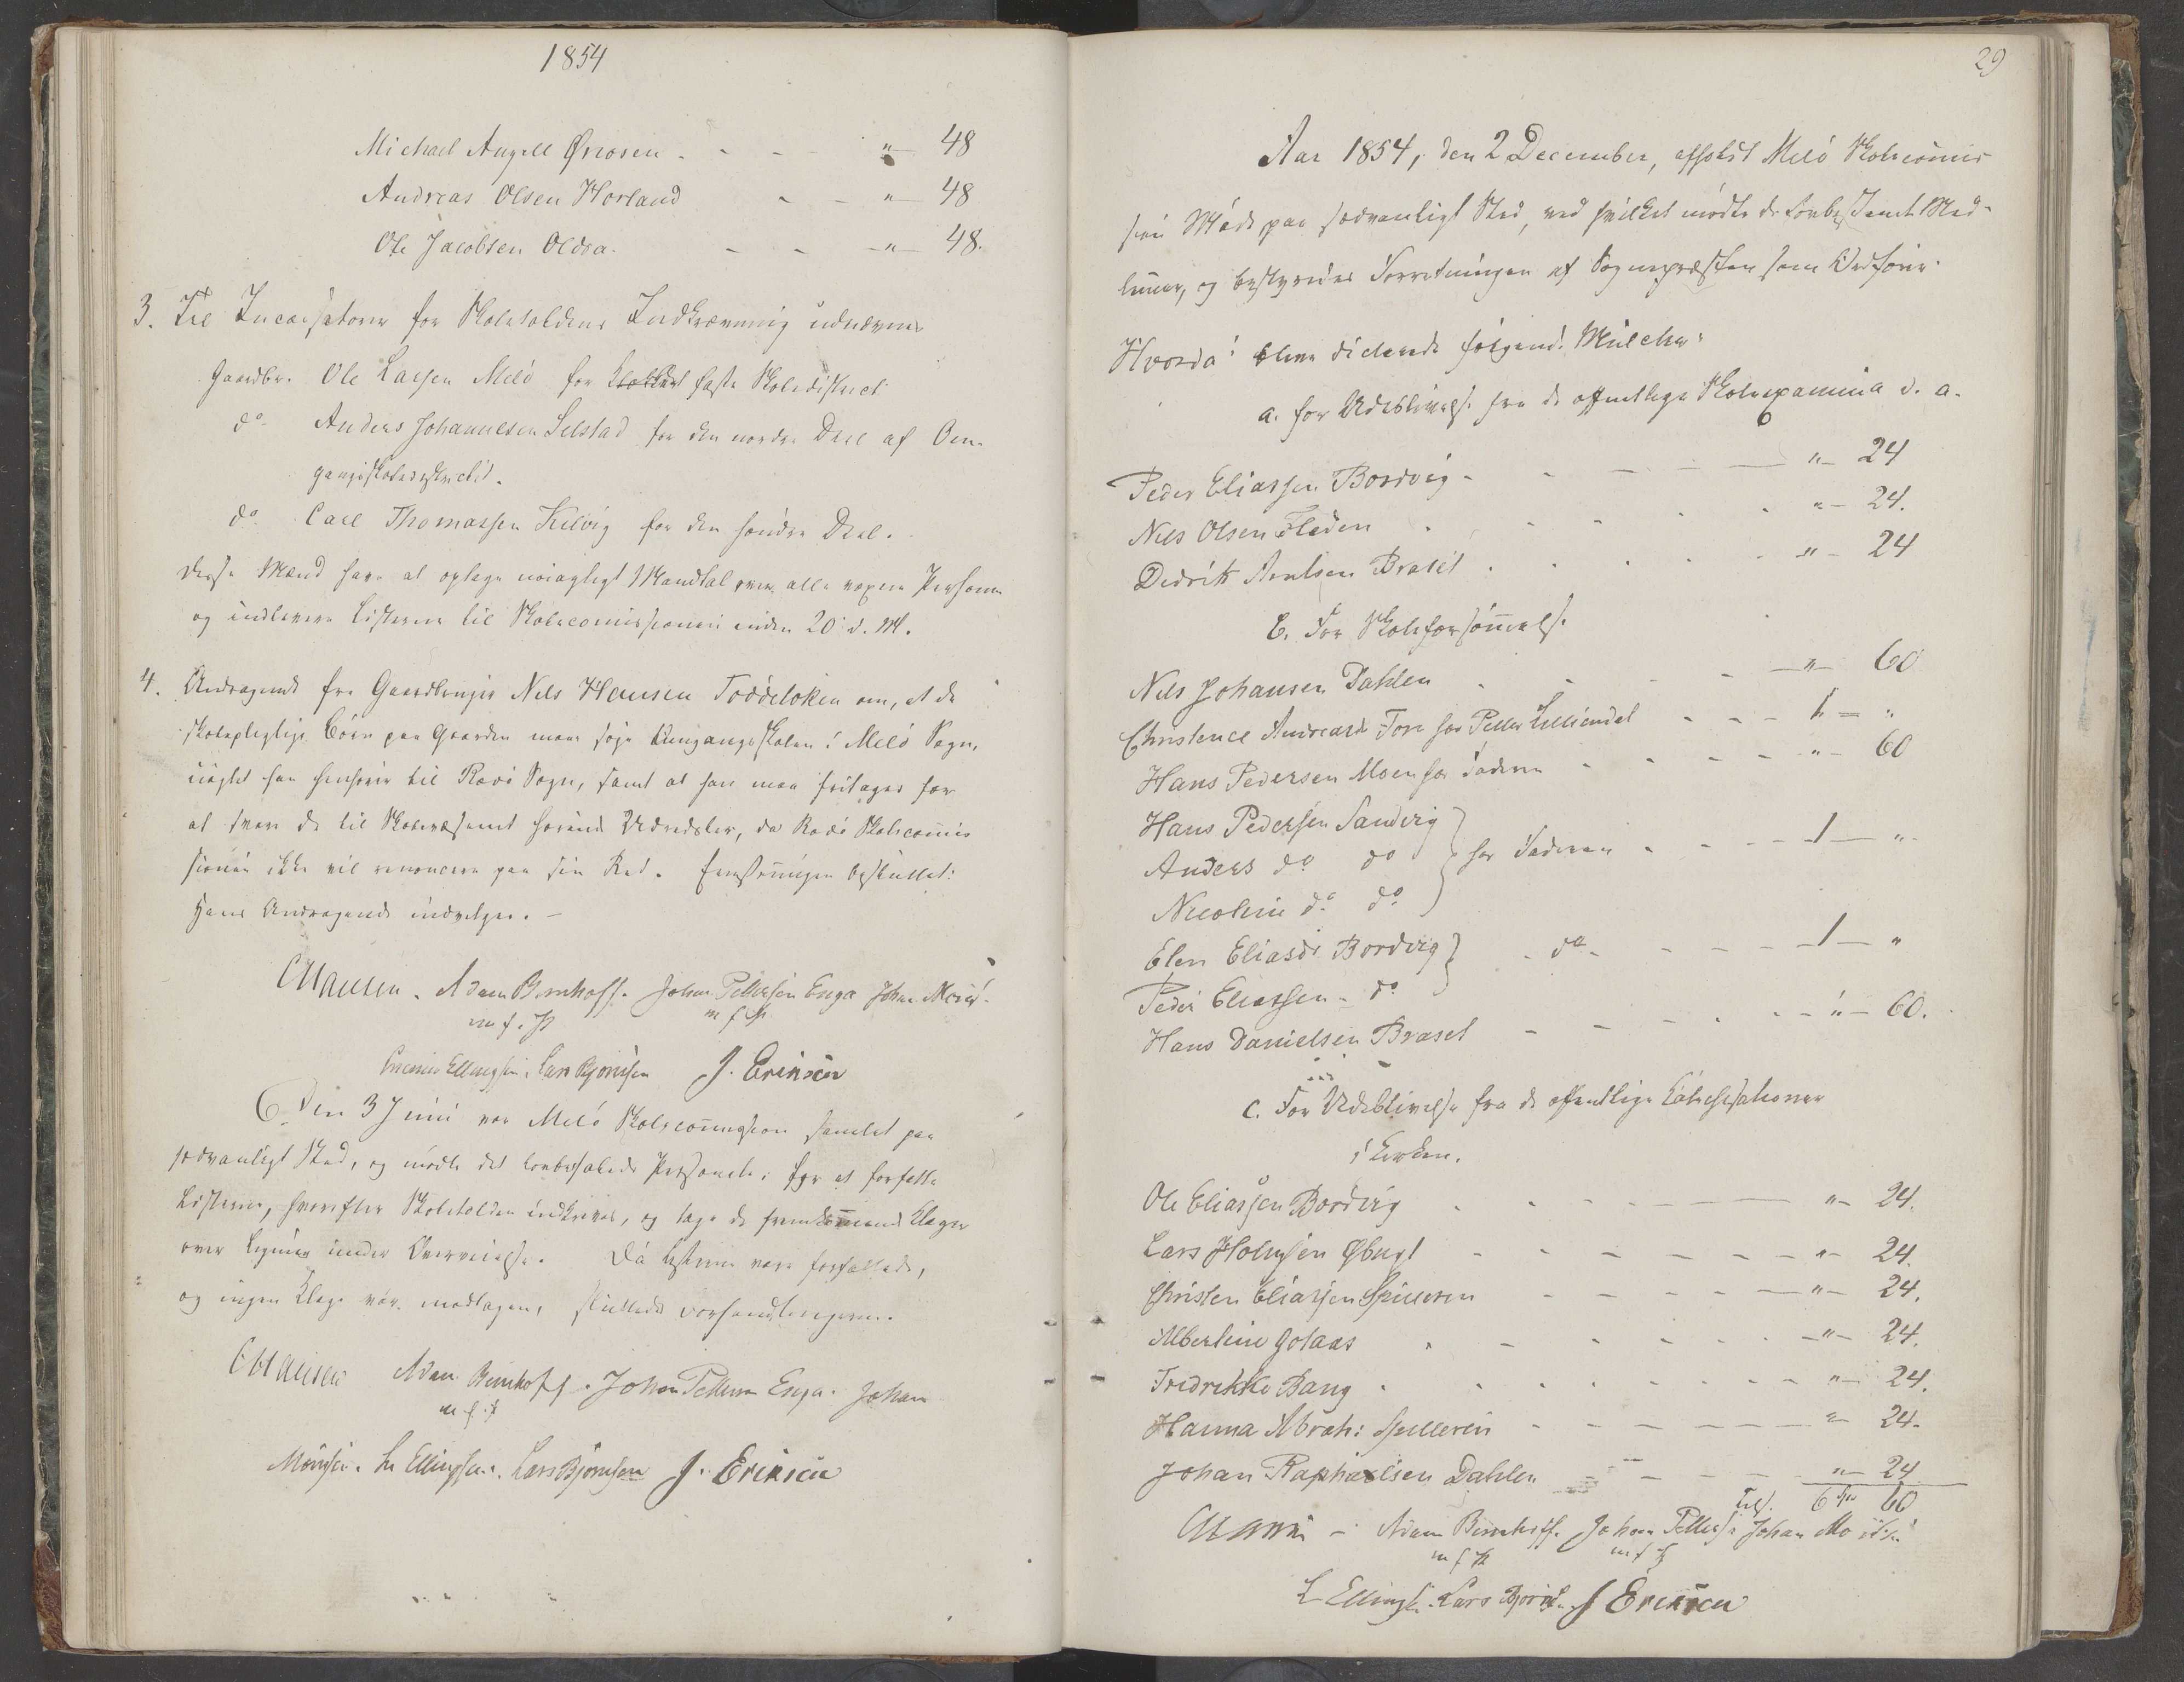 1854
Michael Angell Ørnæsen - - - " 48
Andreas Olsen Horland - - " 48
Ole Jacobsen Oldra - - " 48.
3. Til Incassatorer for Skoletoldens Indkrævning udnævnes
Gaardbr. Ole Larsen Melö for faste Skoledistrict
do Anders Johannesen Selstad for den nordre Deel af Om-
gangsskoledistrictet.
do Carl Thomassen Kilvig for den søndre Deel.
Disse Mænd have at optage nøiagtigt Mandtal over alle voxne Personer
og indlevere Listerne til Skolecommissionen inden 20 d. M.
4. Andragende fra Gaardbruger Nils Hansen om, at de
skolepligtige Børn paa Gaarden maae søge Omgangsskolen i Melö Sogn,
uagtet han henhører til Rödö Sogn, samt at han maa fritages for
at svare de til Skolevæsenet hørende Udredsler, da Rödö Skolecommis
sionen ikke vil renoncere paa sin Ret. besluttet:
Hans Andragende indvilges. -
Adam Bernhoff. Johan Pettersen Enga Johan
m f. P m f P
Ellingsen. Lars Bjørnsen J. Eriksen
Den 3 Juni var Melö Skolecommission samlet paa
sædvanligt Sted, og mødte det lovbefalede Personale, for at forfatte
Listerne, hvorefter Skoletolden indkræves, og tage de fremkommende Klager
over Ligningen under Overveielse. Da Listerne vare forfattede,
og ingen Klage var modtagen, sluttedes Forhandlingerne.
Adam Bernhoff. Johan Pettersen Enga. Johan
m f. P
Ellingsen. Lars Bjørnsen J. Eriksen
29
Aar 1854, den 2 December, afholdt Melö Skolecommis
sion Møde paa sædvanligt Sted, ved hvilket mødte de lovbestemte Med-
lemmer, og bestyredes Forretningen af Sognepræsten som Ordfører.
Hvorda: bleve dicterede følgende Mulcter:
a. for Udeblivelse fra de offentlige Skoleexamina d. a.
Peder Eliassen Bordvig - - - - " 24
Nils Olsen . - - . . " 24.
Didrik Arntsen Braset . . . . . " 24
b. For Skoleforsømmelse
Nils Johansen Dahlen . - - - " 60
Christence Andreasd. Fore for Petter Lilliendal - - - 1 - "
Hans Pedersen Moen for - - - - " 60
Hans Pedersen Sandvig
Anders do do } for Faderen - - - 1 - "
Nicoline do do
Elen Eliasd. Bordvig } - do - - - - 1 - "
Peder Eliassen - do
Hans Danielsen Braset - - - - - - " - 60.
c. For Udeblivelse fra de offentlige Catechisationer
i Kirken.
Ole Eliassen Bordvig . - - - - " 24.
Lars - - - - - - " 24.
Christen Eliassen Spilderen - - - - " 24.
Albertine Gotaas . - - - - - " 24.
Fredrikke Bang . - - - - - - - " 24.
Hanna Abrah: - - - - - " 24.
Johan Raphaelsen Dahlen - - - - " 24
Tils. 6 Spd 60
Adam Bernhoff. Johan Petters. Johan
m f P m f P
L Ellings. Lars Bjørns. J Eriksen